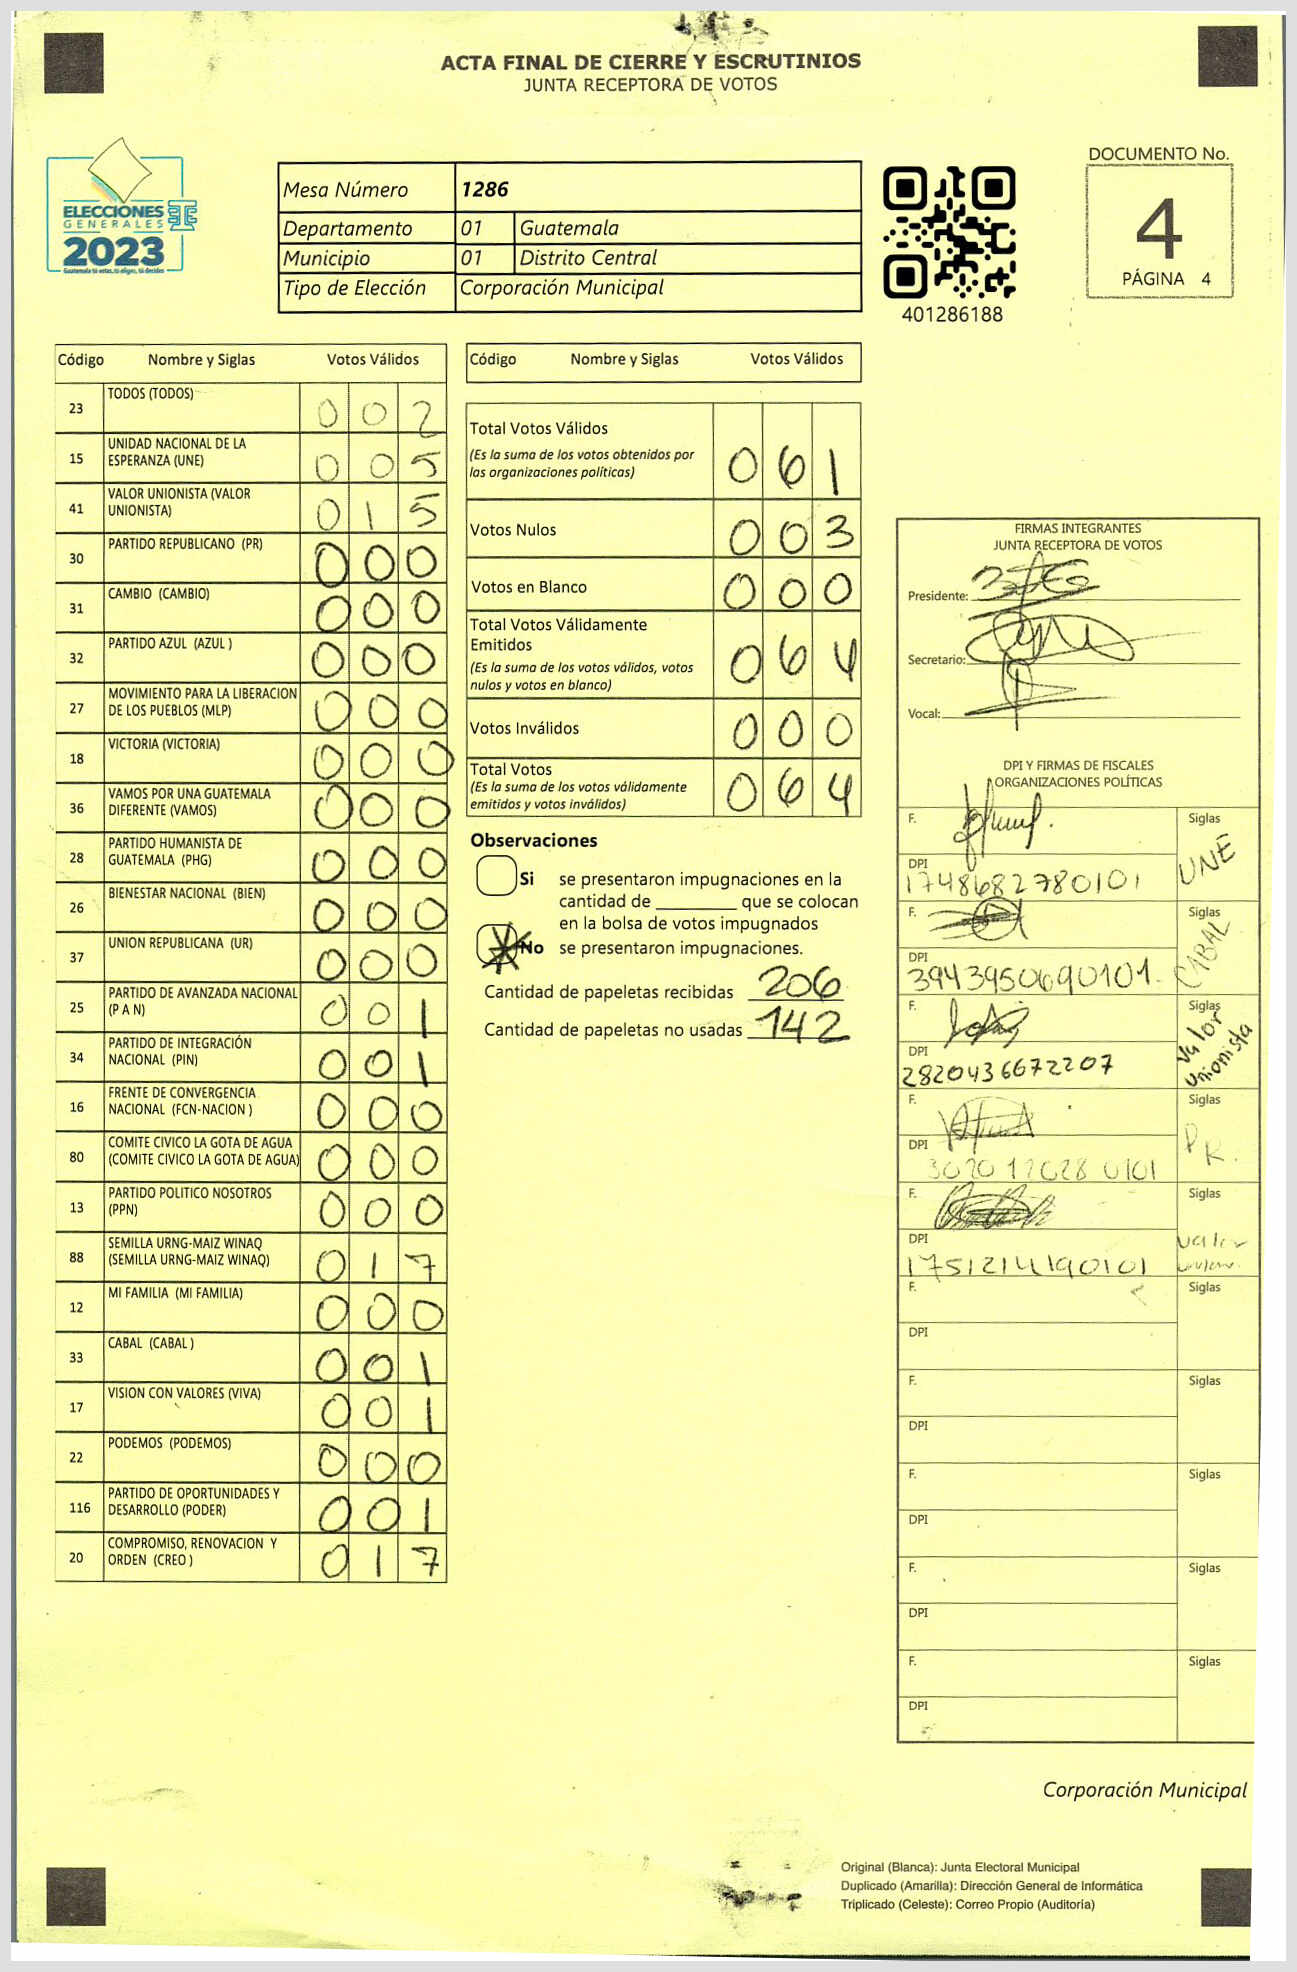 ACTA FINAL DE CIERRE Y ESCRUTINIOS
JUNTA RECEPTORA DE VOTOS
ELECCIONES
GENERALES
2023
Guatemala tú votas, tú eliges, tú decides
Mesa Número 1286
Departamento 01 Guatemala
Municipio 01 Distrito Central
Tipo de Elección Corporación Municipal
401286188
DOCUMENTO No.
4
PÁGINA 4
Código Nombre y Siglas Votos Válidos
23 TODOS (TODOS) 0 0 2
15 UNIDAD NACIONAL DE LA
ESPERANZA (UNE) 0 0 5
41 VALOR UNIONISTA (VALOR
UNIONISTA) 0 1 5
30 PARTIDO REPUBLICANO (PR) 0 0 0
31 CAMBIO (CAMBIO) 0 0 0
32 PARTIDO AZUL (AZUL ) 0 0 0
27 MOVIMIENTO PARA LA LIBERACION
DE LOS PUEBLOS (MLP) 0 0 0
18 VICTORIA (VICTORIA) 0 0 0
36 VAMOS POR UNA GUATEMALA
DIFERENTE (VAMOS) 0 0 0
28 PARTIDO HUMANISTA DE
GUATEMALA (PHG) 0 0 0
26 BIENESTAR NACIONAL (BIEN) 0 0 0
37 UNION REPUBLICANA (UR) 0 0 0
25 PARTIDO DE AVANZADA NACIONAL
(P A N) 0 0 1
34 PARTIDO DE INTEGRACIÓN
NACIONAL (PIN) 0 0 1
16 FRENTE DE CONVERGENCIA
NACIONAL (FCN-NACION ) 0 0 0
80 COMITE CIVICO LA GOTA DE AGUA
(COMITE CIVICO LA GOTA DE AGUA) 0 0 0
13 PARTIDO POLITICO NOSOTROS
(PPN) 0 0 0
88 SEMILLA URNG-MAIZ WINAQ
(SEMILLA URNG-MAIZ WINAQ) 0 1 7
12 MI FAMILIA (MI FAMILIA) 0 0 0
33 CABAL (CABAL ) 0 0 1
17 VISION CON VALORES (VIVA) 0 0 1
22 PODEMOS (PODEMOS) 0 0 0
116 PARTIDO DE OPORTUNIDADES Y
DESARROLLO (PODER) 0 0 1
20 COMPROMISO, RENOVACION Y
ORDEN (CREO ) 0 1 7
Código Nombre y Siglas Votos Válidos
Total Votos Válidos
(Es la suma de los votos obtenidos por
las organizaciones políticas) 0 6 1
Votos Nulos 0 0 3
Votos en Blanco 0 0 0
Total Votos Válidamente
Emitidos
(Es la suma de los votos válidos, votos
nulos y votos en blanco) 0 6 4
Votos Inválidos 0 0 0
Total Votos
(Es la suma de los votos válidamente
emitidos y votos inválidos) 0 6 4
Observaciones
Si se presentaron impugnaciones en la
cantidad de ________ que se colocan
en la bolsa de votos impugnados
No se presentaron impugnaciones.
Cantidad de papeletas recibidas 206
Cantidad de papeletas no usadas 142
FIRMAS INTEGRANTES
JUNTA RECEPTORA DE VOTOS
Presidente:
Secretario:
Vocal:
DPI Y FIRMAS DE FISCALES
ORGANIZACIONES POLÍTICAS
F. Siglas
UNE
DPI
1748682780101
F. Siglas
CABAL
DPI
3943950690101.
F. Siglas
Valor
Unionista
DPI
2820436672207
F. Siglas
PR.
DPI
F. Siglas
Valor
DPI
1751214190101
F. Siglas
DPI
F. Siglas
DPI
F. Siglas
DPI
F. Siglas
DPI
F. Siglas
DPI
Corporación Municipal
Original (Blanca): Junta Electoral Municipal
Duplicado (Amarilla): Dirección General de Informática
Triplicado (Celeste): Correo Propio (Auditoría)